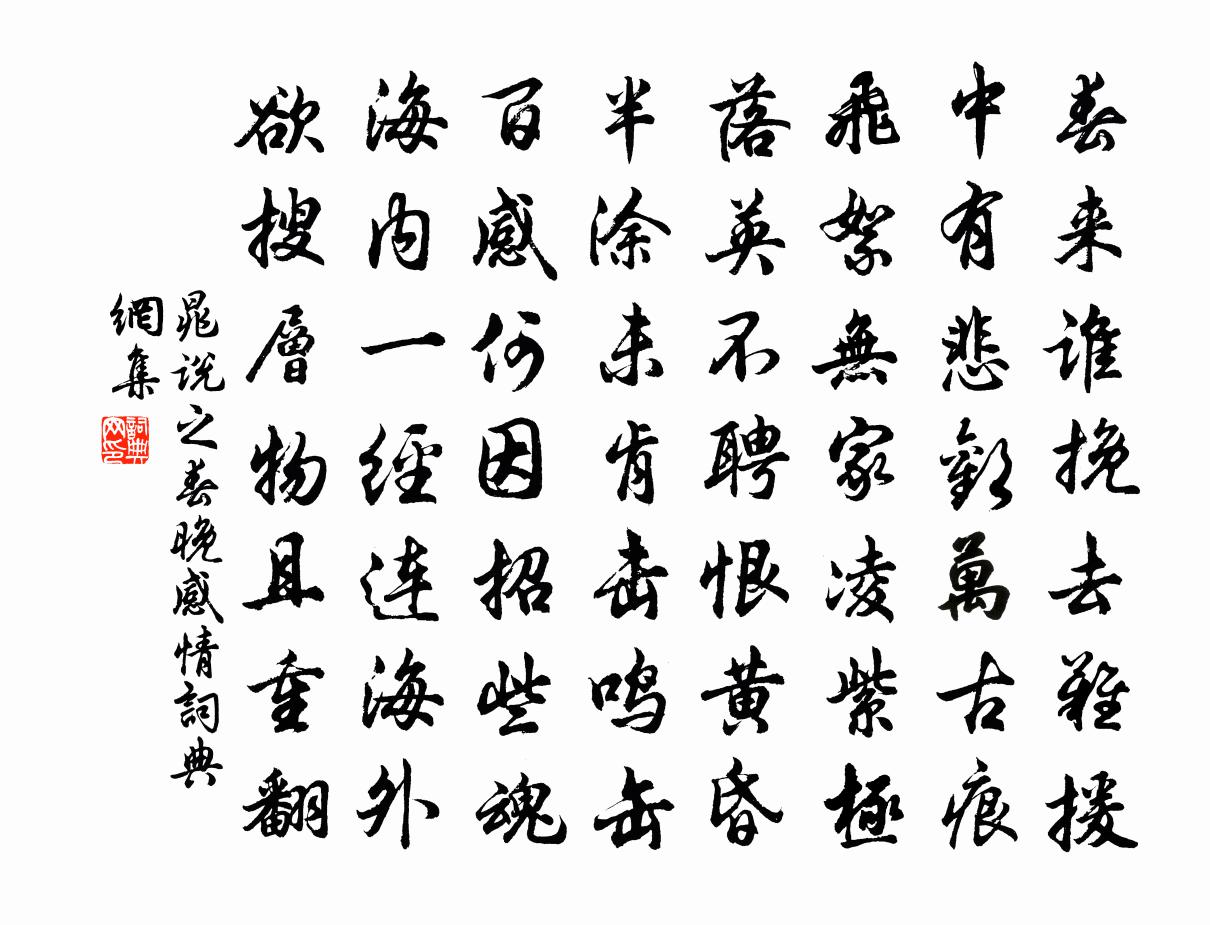 春来谁挽去難援
中有悲歡萬古痕
飛絮無家凌紫極
落英不聘恨黄昏
半涂未肯击鸣缶
百感何因招些魂
海内一經連海外
欲搜層物且重翻
晁说之春晚感情詞典
網集
詞典
网印